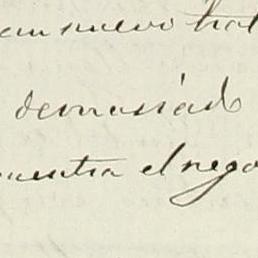 un nuevo trat
demasiado
cuentra el nego